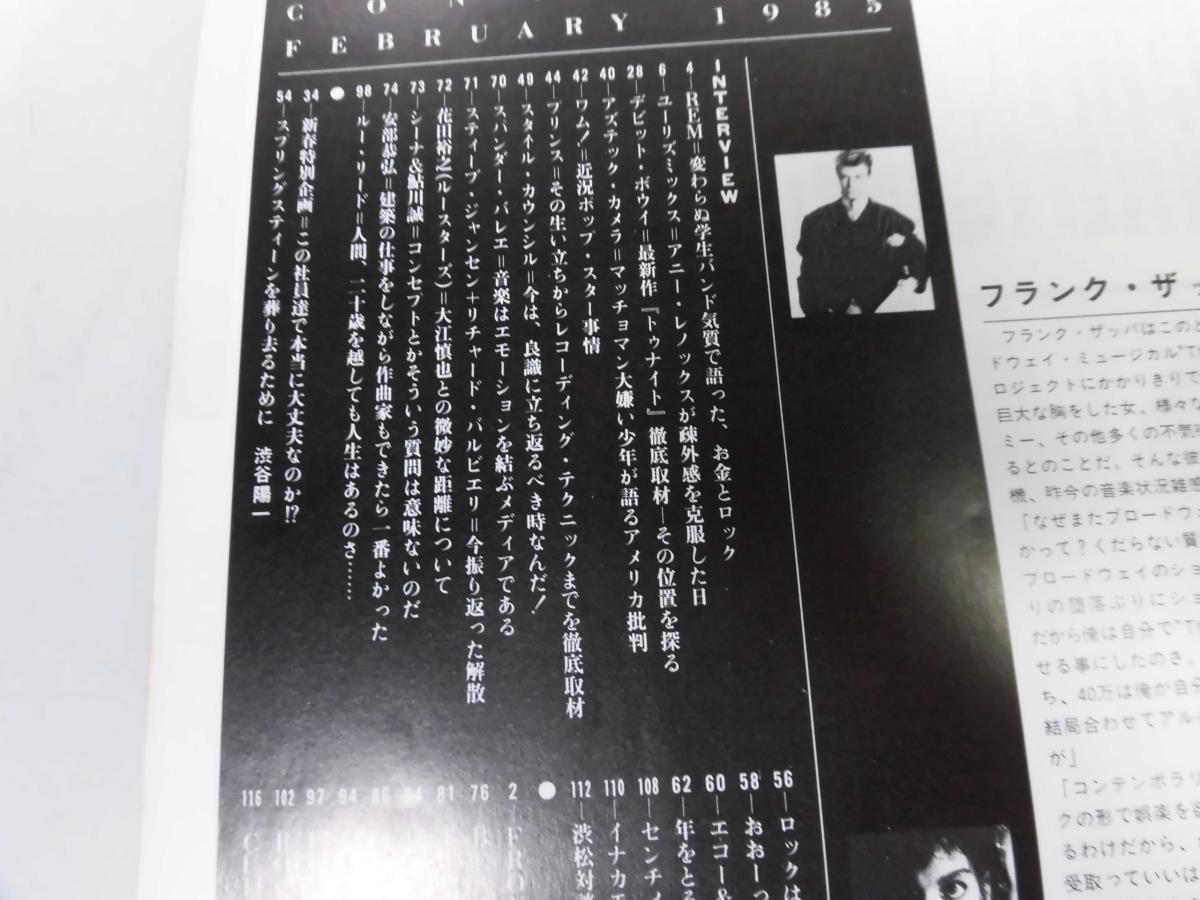 FEBRUARY 1985
INTERVIEW
4―REM＝変わらぬ学生バンド気質で語った、お金とロック
6―ユーリズミックス＝アニー・レノックスが疎外感を克服した日
28―デビット・ボウイ＝最新作『トゥナイト』徹底取材―その位置を探る
40―アズテック・カメラ＝マッチョマン大嫌い少年が語るアメリカ批判
42―ワム！＝近況ポップ・スター事情
44―プリンス＝その生い立ちからレコーディング・テクニックまでを徹底取材
49―スタイル・カウンシル＝今は、良識に立ち返るべき時なんだ！
70―スパンダー・バレエ＝音楽はエモーションを結ぶメディアである
71―スティーブ・ジャンセン＋リチャード・バルビエリ＝今振り返った解散
72―花田裕之(ルースターズ)＝大江慎也との微妙な距離について
73―シーナ&鮎川誠＝コンセプトとかそういう質問は意味ないのだ
74―安部恭弘＝建築の仕事をしながら作曲家もできたら一番よかった
98―ルー・リード＝人間、二十歳を越しても人生はあるのさ……
●
34―新春特別企画＝この社員達で本当に大丈夫なのか!?
54―スプリングスティーンを葬り去るために　渋谷陽一
56―ロックは
58―おおーっ
60―エコー&
62―年をとる
108―センチメ
110―イナカエ
112―渋松対談
●
2―FRO
76
81
94
97
102
116
フランク・ザッ
フランク・ザッパはこの
ドウェイ・ミュージカル"T
ロジェクトにかかりきりで
巨大な胸をした女、様々な
ミー、その他多くの不気味
るとのことだ。そんな彼
機、昨今の音楽状況雑感
「なぜまたブロードウェ
かって？くだらない質
ブロードウェイのショ
りの堕落ぶりにショ
だから俺は自分で"T
せる事にしたのさ。
ち、40万は俺が自分
結局合わせてアル
が」
「コンテンポラリ
クの形で娯楽を
るわけだから、
受取っていいは